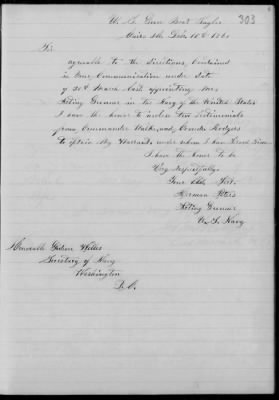 303
U. S. Gun Boat
Sir
agreeable to the directions, contained
in your Communication under date
of March last, appointing me
Acting Gunner in the Navy of the United States
I have the honor to inclose two testimonials
from Commander Walke, and Comdr Rodgers
to obtain my Warrant under whom I have
I have the honor to be
Very respectfully
Your Obt Servt
Herman Peters
Acting Gunner
U. S. Navy
Honorable Gideon Welles
Secretary of Navy
Washington
D. C.